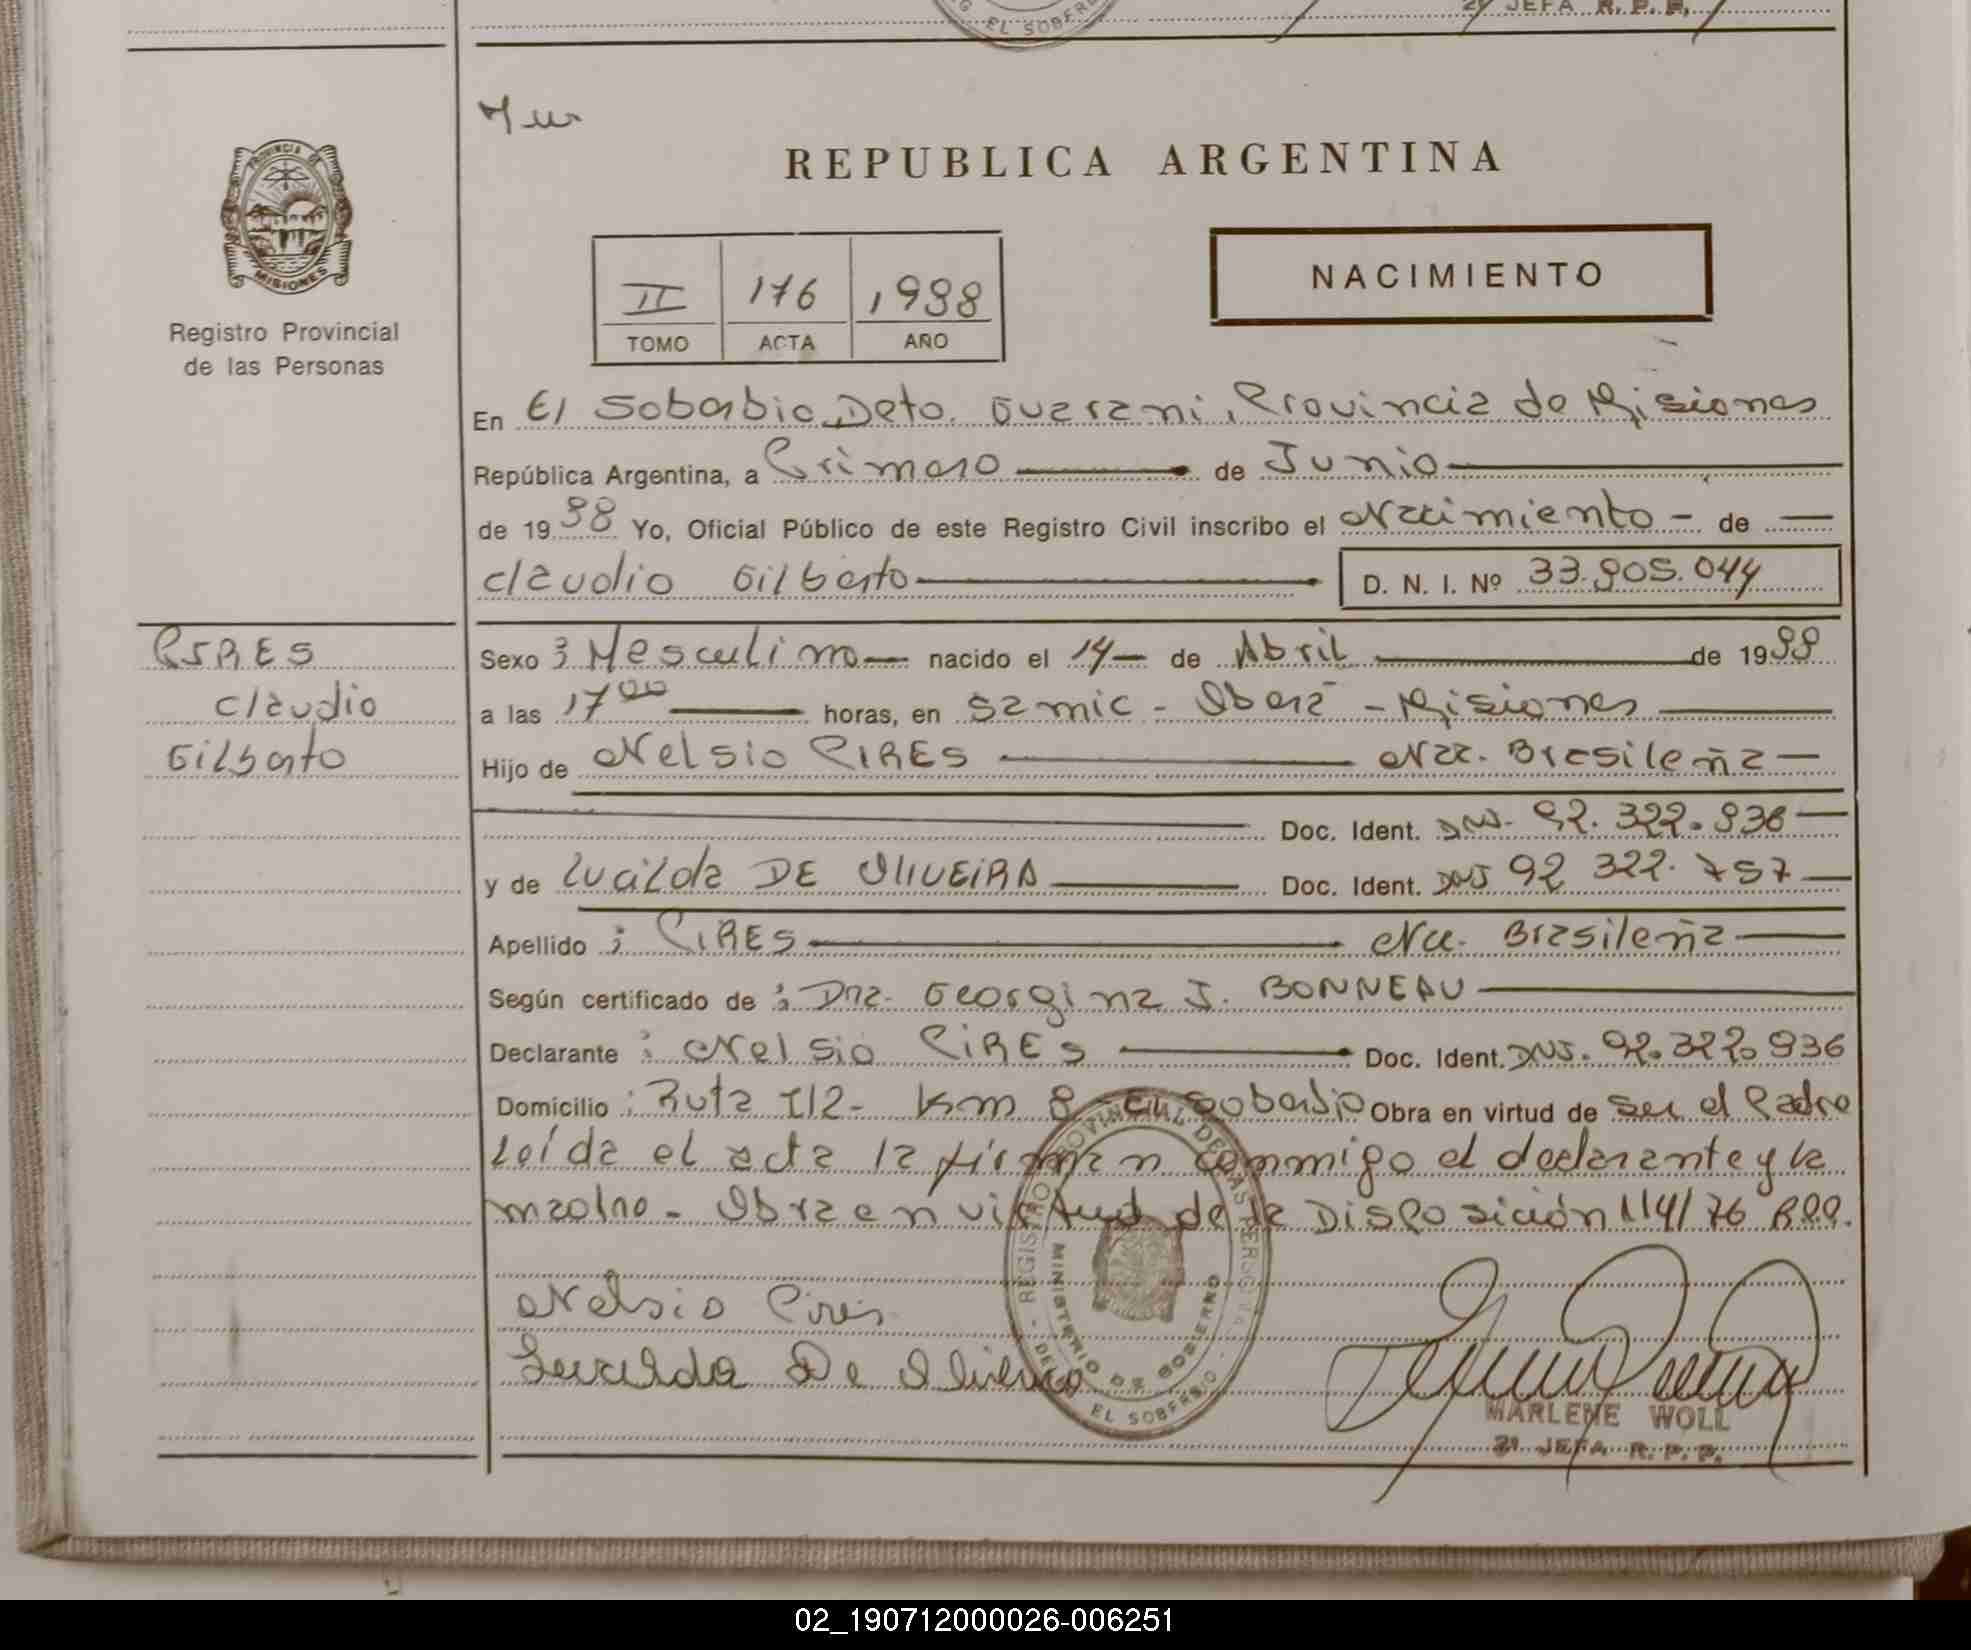 EL SOBERB
2º JEFA R. P. P.
REPUBLICA ARGENTINA
PROVINCIA DE
MISIONES
Registro Provincial
de las Personas
II 176 1988
TOMO ACTA AÑO
NACIMIENTO
En El Soberbio, Dpto. Guarani, Provincia de Misiones
República Argentina, a Primero de Junio
de 1988 Yo, Oficial Público de este Registro Civil inscribo el Nacimiento - de —
Claudio Gilberto D. N. I. Nº 33.905.044
PIRES
Claudio
Gilberto
Sexo : Masculino — nacido el 14 — de Abril de 1988
a las 17 00 horas, en Samic - Oberá - Misiones
Hijo de Nelsio PIRES Nac. Brasileña —
Doc. Ident. DNI. 92.322.936 —
y de Lucilda DE OLIVEIRA Doc. Ident. DNI 92 322.757 —
Apellido : PIRES Nac. Brasileña
Según certificado de : Dra. Georgina J. BONNEAU
Declarante : Nelsio PIRES Doc. Ident. DNI. 92.322.936
Domicilio : Ruta 212 - Km 8 - El Soberbio Obra en virtud de ser el Padre
Leída el acta la firman conmigo el declarante y la
madre - Obra en virtud de la Disposición 114/76 R.P.P.
Nelsio Pires
Lucilda De Oliveira
REGISTRO PROVINCIAL DE LAS PERSONAS
MINISTERIO DE GOBIERNO
EL SOBERBIO
MARLENE WOLL
2º JEFA R. P. P.
02_190712000026-006251